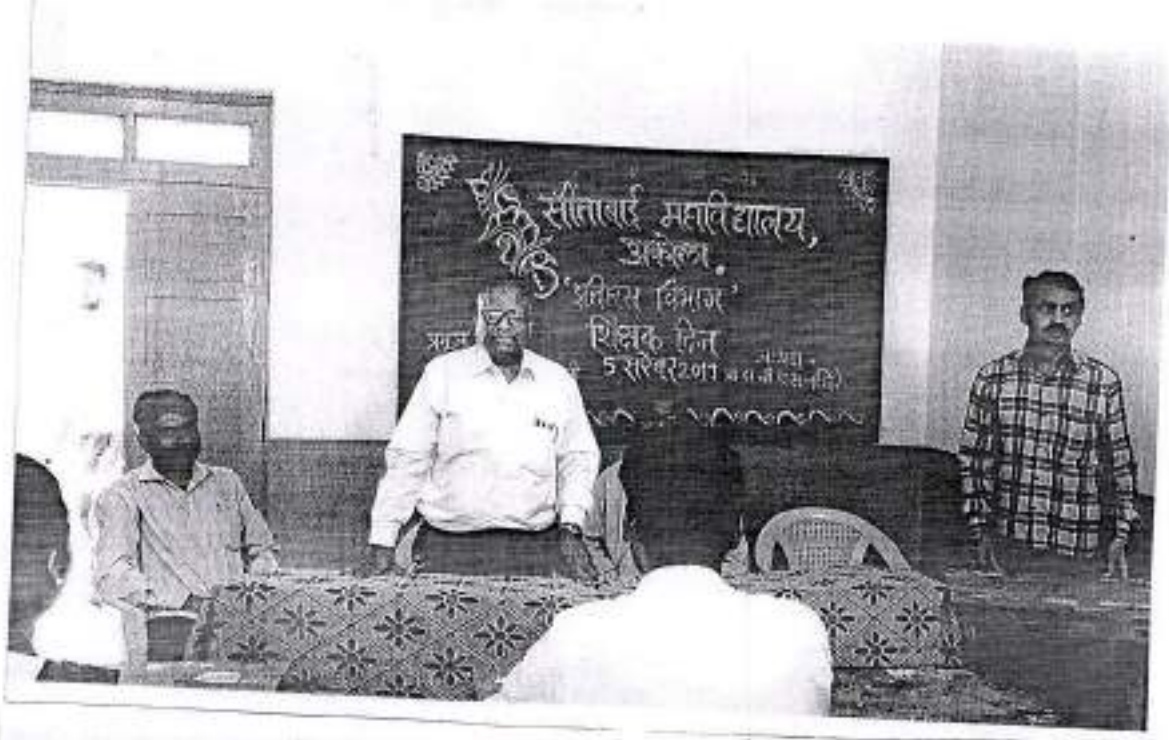 सीताबाई महाविद्यालय,
अकोला.
'इतिहास विभाग'
शिक्षक दिन
5 सप्टेंबर 2011